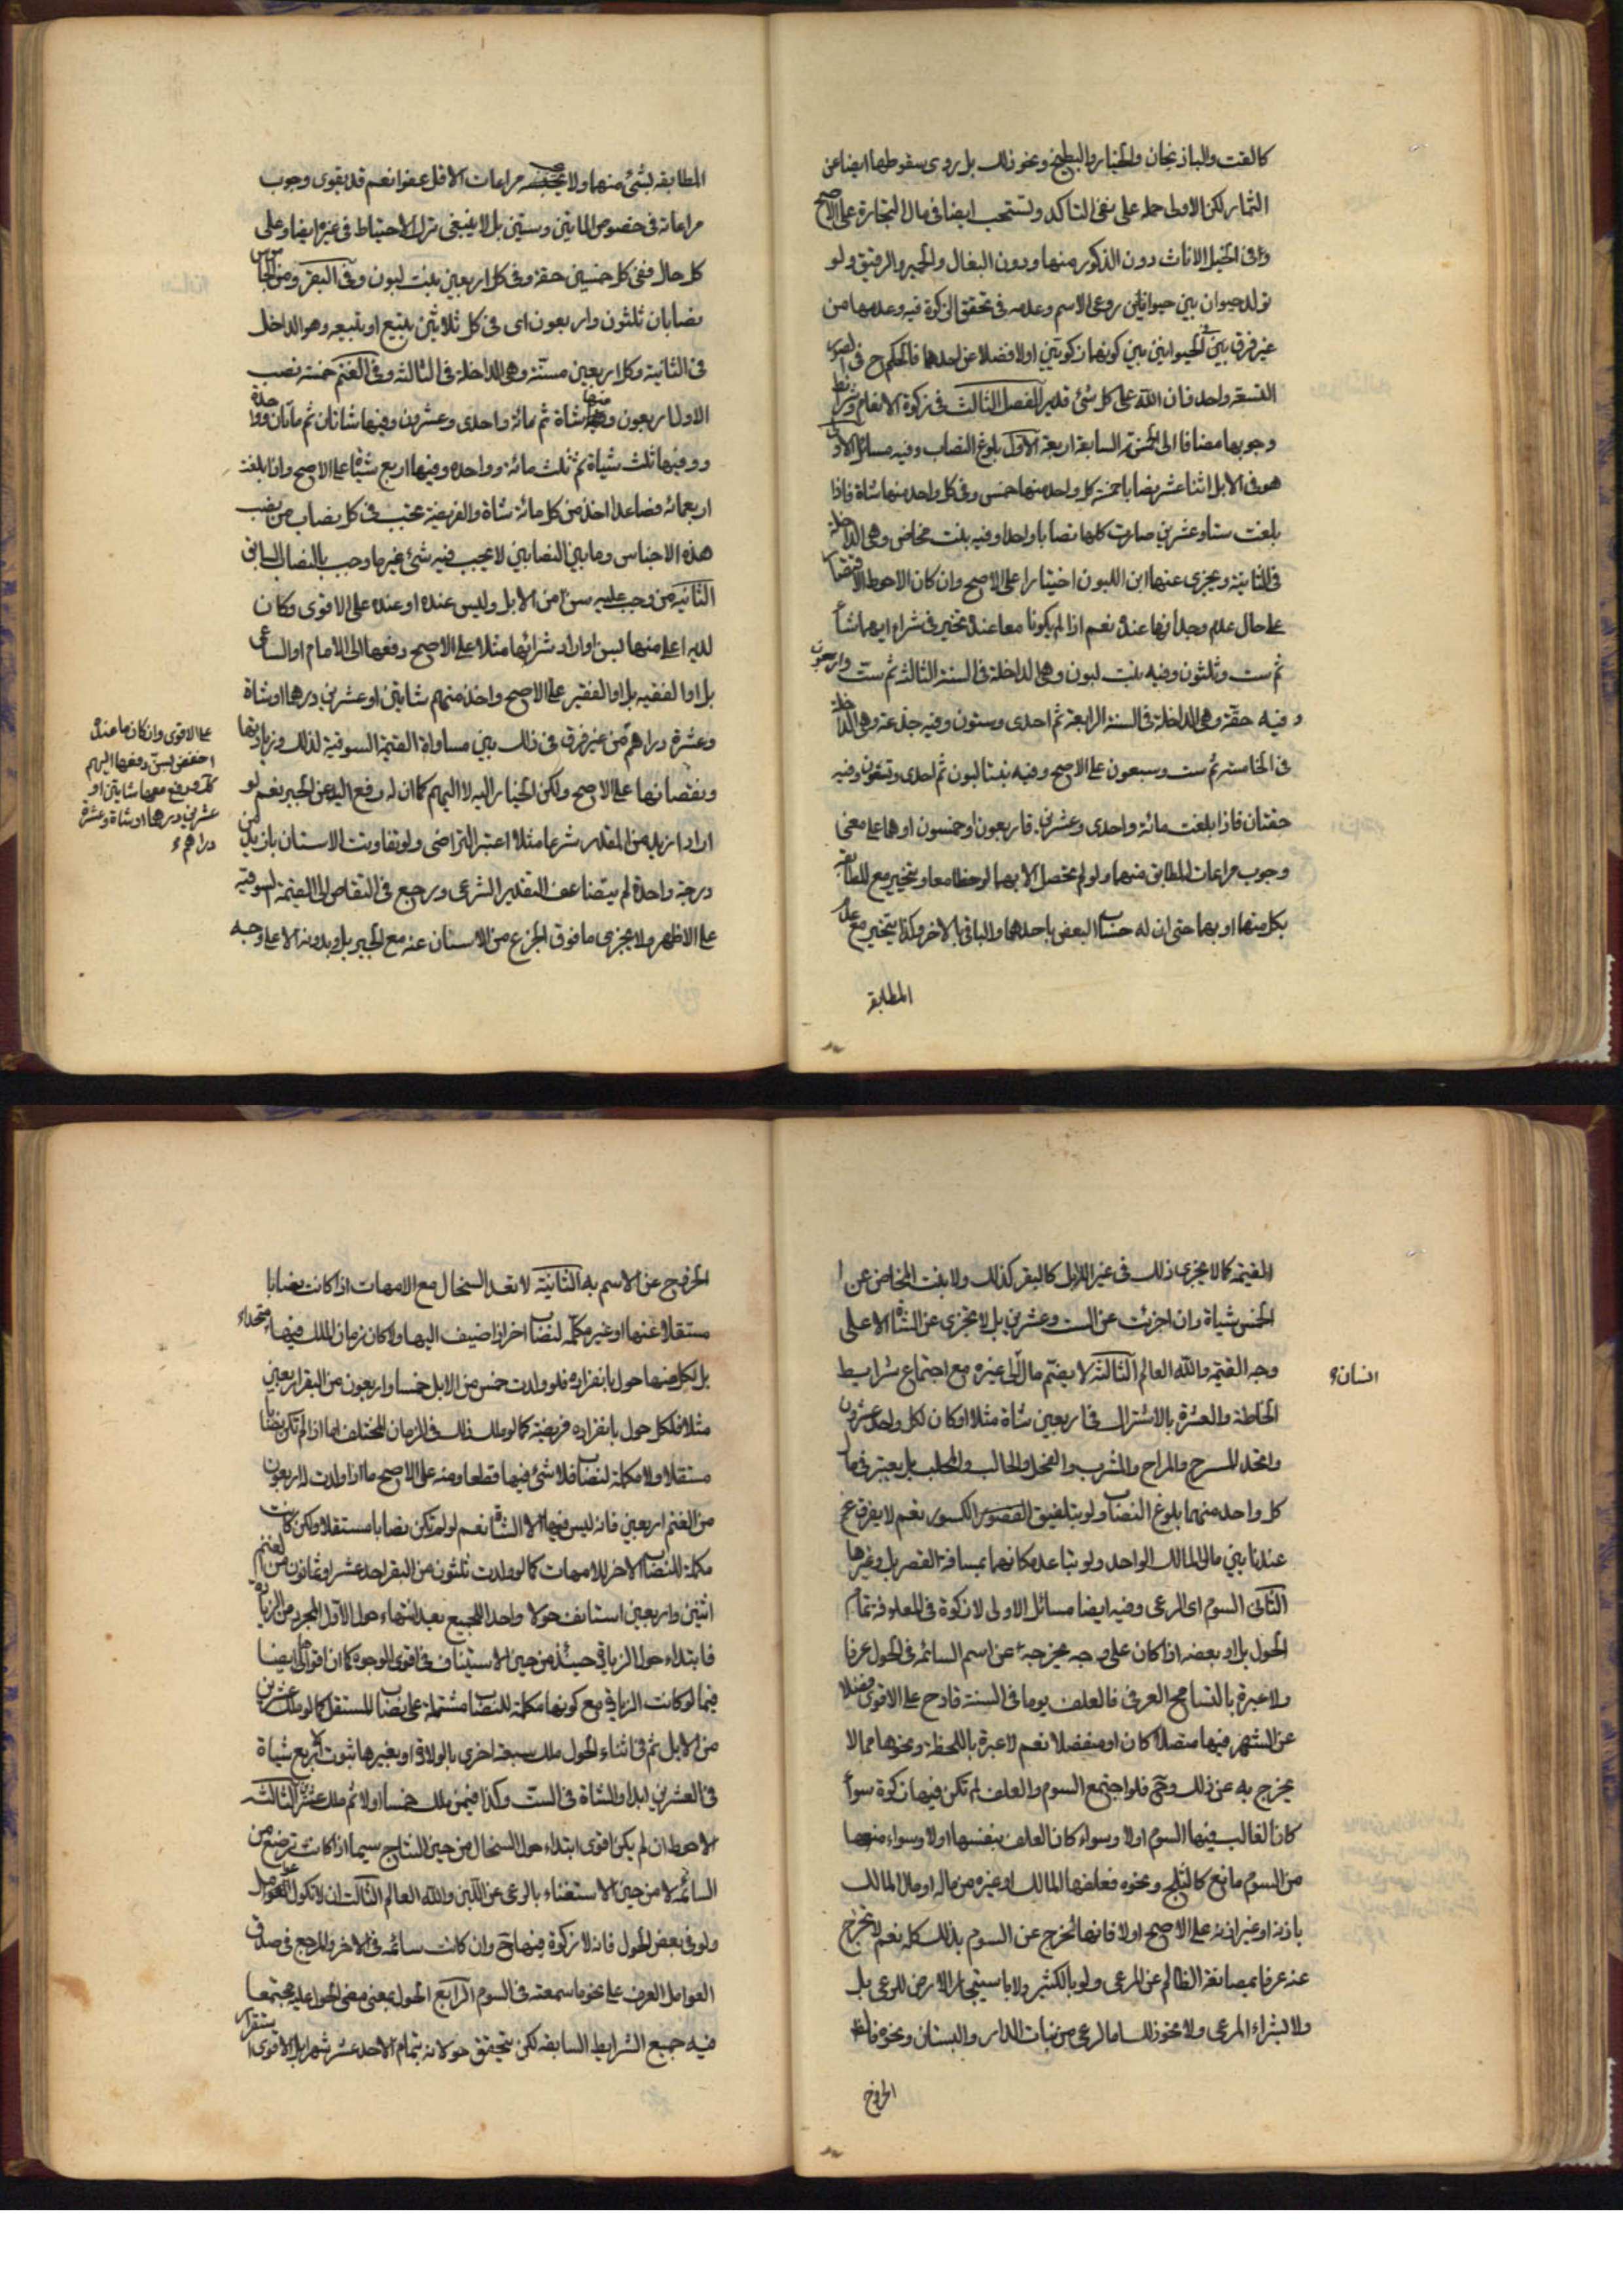 كالقت والباذنجان والخيار والبطيخ ونحو ذلك بل روى سقوطها ايضا عن
الثمار لكن الاولى حمله على نفى التاكد وتستحب ايضا فى مال التجارة على الاصح
وفى الخيل الاناث دون الذكور منها ودون البغال والحمير والرقيق ولو
تولد حيوان بين حيوانين روعى الاسم وعدمه فى تحقق الزكوة فيه وعدمها من
غير فرق بين الحيوانين بين كونهما زكويين اولا فضلا عن احدهما فالحكم ح فى الصور
التسعة واحد فان الله على كل شئ قدير الفصل الثالث فى زكوة الانعام وشرايط
وجوبها مضافا الى الخمسة السابقة اربعة الاول بلوغ النصاب وفيه مسائل الاولى
هو فى الابل اثنا عشر نصابا خمسة كل واحد منها خمس وفى كل واحد منها شاة فاذا
بلغت ستا وعشرين صارت كلها نصابا واحدا وفيه بنت مخاض وهى الداخلة
فى الثانية ويجزى عنها ابن اللبون اختيارا على الاصح وان كان الاحوط الاقتصار
على حال عدم وجدانها عنده نعم اذا لم يكونا معا عنده تخير فى شراء ايهما شاء
ثم ست وثلثون وفيه بنت لبون وهى الداخلة فى السنة الثالثة ثم ست واربعون
وفيه حقة وهى الداخلة فى السنة الرابعة ثم احدى وستون وفيه جذعة وهى الداخلة
فى الخامسة ثم ست وسبعون على الاصح وفيه بنتا لبون ثم احدى وتسعون وفيه
حقتان فاذا بلغت مائة واحدى وعشرين فاربعون او خمسون او هما على معنى
وجوب مراعات المطابق منهما ولو لم يحصل الا بهما لوحظا معا ويتخير مع المطابقة
بكل منهما او بهما حتى ان له حساب البعض باحدهما والباقى بالاخر وكذا يتخير مع عدم
المطابقة
المطابقه بشئ منهما ولا يجب مراعات الاقل عفوا نعم قد يقوى وجوب
مراعاته فى خصوص المايتين وستين بل لا ينبغى ترك الاحتياط فى غيره ايضا وعلى
كل حال ففى كل خمسين حقة وفى كل اربعين بنت لبون وفى البقر ومنه الجاموس
نصابان ثلثون واربعون اى فى كل ثلاثين تبيع او تبيعه وهو الداخل
فى الثانية وكل اربعين مسنة وهى الداخلة فى الثالثه وفى الغنم خمسة نصب
الاول اربعون وفيها شاة ثم مائة واحدى وعشرون وفيها شاتان ثم مأتان وواحدة
وفيها ثلث شياة ثم ثلث مائة وواحده وفيها اربع شياة على الاصح واذا بلغت
اربعمائه فصاعدا اخذ من كل مائة شاة والفريضة تجب فى كل نصاب من نصب
هذه الاجناس وما بين النصابين لا يجب فيه شئ غير ما وجب بالنصاب السابق
الثانية من وجب عليه سن من الابل وليس عنده او عنده على الاقوى وكان
لديه اعلى منها بسن او اراد شرائها مثلا على الاصح دفعها الى الامام او الساعى
بل او الفقيه بل او الفقير على الاصح واخذ منهم شايتين او عشرين درهما او شاة
وعشرة دراهم من غير فرق فى ذلك بين مساواة القيمة السوقية لذلك وزيادتها
ونقصانها على الاصح ولكن الخيار اليه لا اليهم كما ان له دفع اليه عن الجبر نعم لو
اراد ازيد من المقدر شرعا مثلا اعتبر التراضى ولو تفاوتت الاسنان بازيد من
درجة واحدة لم يتضاعف التقدير الشرعى ويرجع فى التقاص الى القيمة السوقية
على الاظهر ولا يجزى ما فوق الجذع من الاسنان عنه مع الجبر بل وبدونه الا على وجه
على الاقوى وان كان ما عنده
اخفض بسن دفعها اليهم
ودفع معها شايتين او
عشرين درهما او شاة وعشرة
دراهم
القيمة كما لا يجزى ذلك فى غير الابل كالبقر كذلك ولا بنت المخاض عن
الخمس شياة وان اجزئت عن الست وعشرين بل لا تجزى عن الشاة الا على
وجه القيمة والله العالم الثالثة لا يضم مال الى غيره مع اجتماع شرايط
انسان
الخلطة والعشرة بالاشتراك فى اربعين شاة مثلا او كان لكل واحد عشرون
واتحد المسرح والمراح والمشرب والفحل والحالب والمحلب بل يعتبر فى مال
كل واحد منهما بلوغ النصاب ولو بتلفيق الكسور نعم لا يفرق
عندنا بين مالى المالك الواحد ولو تباعد مكانهما بمسافة القصر بل وغيرها
الثانى السوم اى الرعى وفيه ايضا مسائل الاولى لا زكوة فى المعلوفة تمام
الحول بل او بعضه اذا كان على وجه يخرجه عن اسم السائمه فى الحول عرفا
ولا عبرة بالتسامح العرفى فالعلف يوما فى السنة قادح على الاقوى فضلا
عن الشهر فيها متصلا كان او منفصلا نعم لا عبرة باللحظة ونحوها مما لا
يخرج به عن ذلك وح فلو اجتمع السوم والعلف لم تكن فيها زكوة سواء
كان الغالب فيها السوم اولا وسواء كان العلف بنفسها اولا وسواء منعها
من السوم مانع كالثلج ونحوه فعلفها المالك او غيره من ماله او مال المالك
باذنه او غير اذنه على الاصح اولا فانها تخرج عن السوم بذلك كله نعم لا تخرج
عنه عرفا بمصانعة الظالم عن المرعى ولو بالكثير ولا باستيجار الارض للرعى بل
ولا بشراء المرعى ولا نحو ذلك اما لو رعى من نبات الدار والبستان ونحوه
الخروج
الخروج عن الاسم به الثانية لا تعد السخال مع الامهات اذا كانت نصابا
مستقلا عنها او غير مكملة لنصاب اخر اذا اضيف اليها ولا كان زمان الملك فيهما متحدا
بل لكل منهما حول بانفراده فلو ولدت خمس من الابل خمسا واربعون من البقر اربعين
مثلا فلكل حول بانفراده فريضة كما لو ملك ذلك فى الزمان المختلف اما اذا لم تكن نصابا
مستقلا ولا مكملة لنصاب فلا شئ فيها قطعا ومنه على الاصح ما اذا ولدت له اربعون
من الغنم اربعين فانه ليس فيها الا الشاة نعم لو لم تكن نصابا مستقلا ولكن كانت
مكملة للنصاب الاخر للامهات كما لو ولدت ثلثون من البقر احد عشر او ثمانون من الغنم
اثنين واربعين استانف حولا واحدا للجميع بعد انتهاء حول الاول المجرد من الزيادة
فابتداء حول الزيادة حينئذ من حين الاستيناف فى اقوى الوجوه كما ان اقواها ايضا
فيما لو كانت الزيادة مع كونها مكملة للنصاب مشتملة على نصاب المستقل كما لو ملك عشرين
من الابل ثم فى اثناء الحول ملك سبعة اخرى بالولادة او بغيرها ثبوت الاربع شياة
فى العشرين ابدا والشاة فى الست وكذا فيمن ملك خمسا اولا ثم ملك عشرين الثالثة
الاحوط ان لم يكن اقوى ابتداء حول السخال من حين النتاج سيما اذا كانت ترضع من
السائمة لا من حين الاستغناء بالرعى عن اللبن والله العالم الثالث ان لا تكون عوامل
ولو فى بعض الحول فانه لا زكوة فيها ح وان كانت سائمه فى الاخر والمرجع فى صدق
العوامل العرف على نحو ما سمعته فى السوم الرابع الحول بمعنى مضى الحول عليه مجتمعا
فيه جميع الشرايط السابقه لكن يتحقق حولانه بتمام الاحد عشر شهرا بل الاقوى استقرار